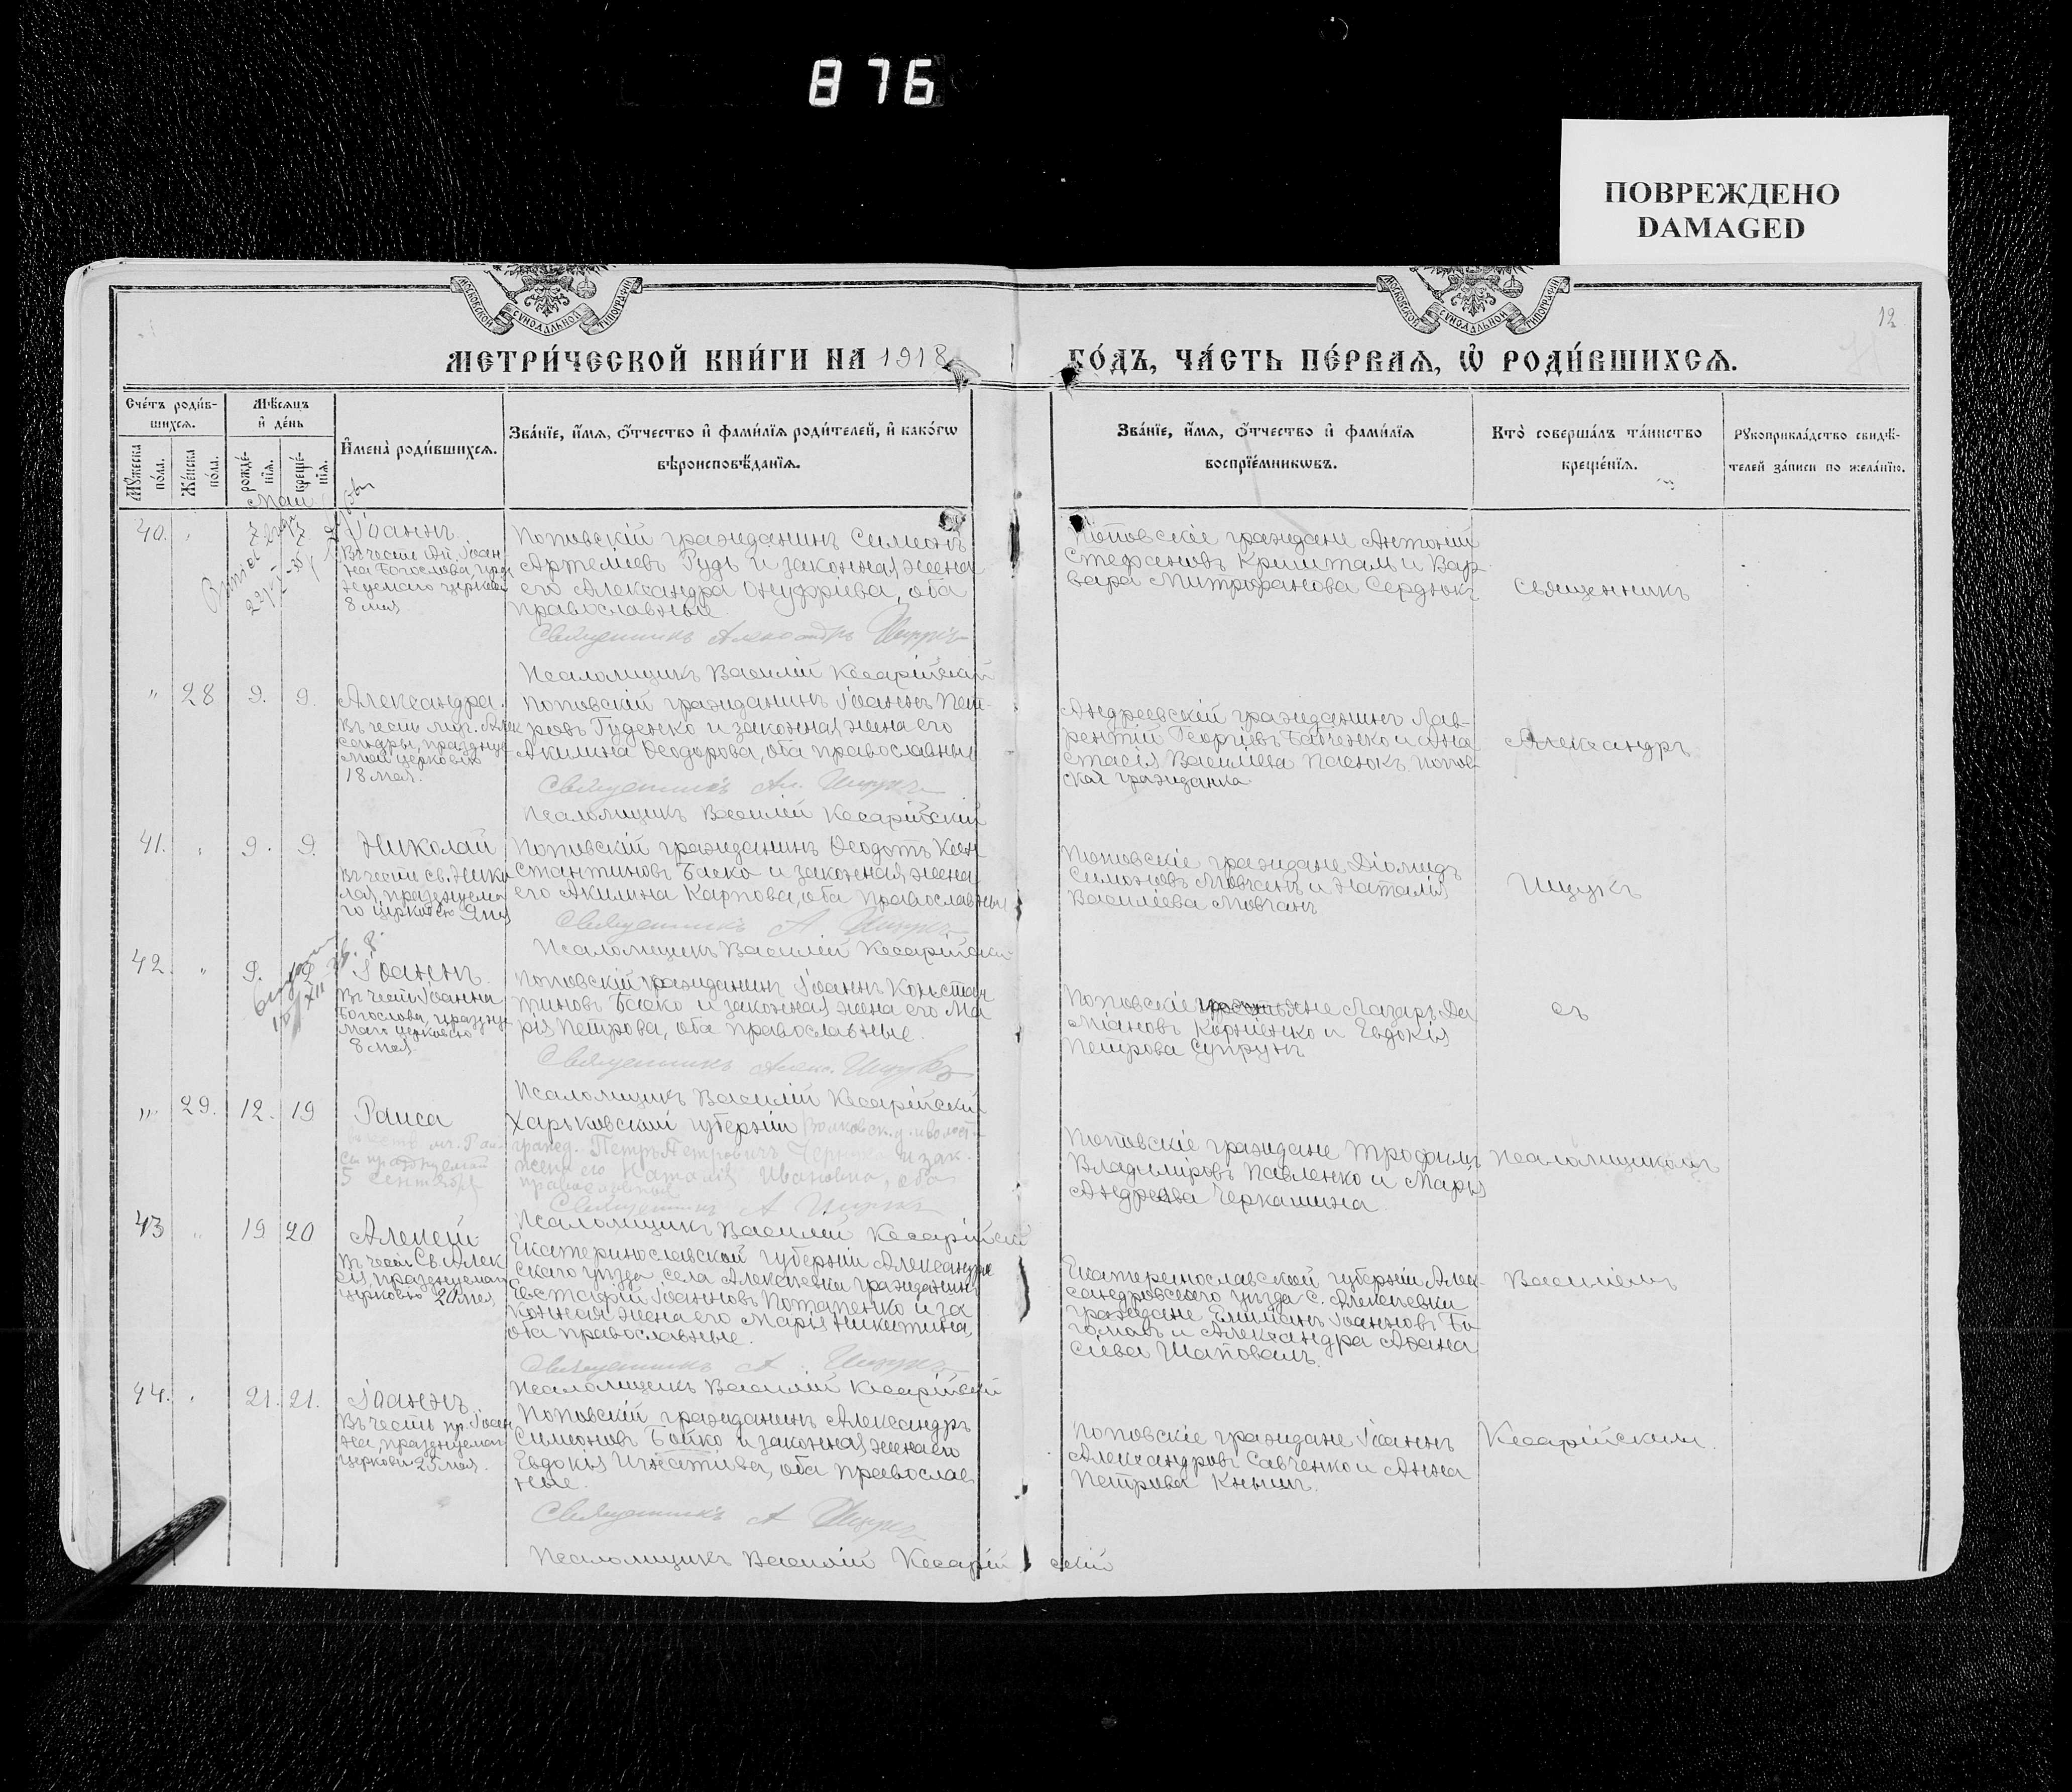 876
ПОВРЕЖДЕНО
DAMAGED
МОСКОВСКОЙ СѴНОДАЛЬНОЙ ТИПОГРАФІИ
МОСКОВСКОЙ СѴНОДАЛЬНОЙ ТИПОГРАФІИ
12
МЕТРИ́ЧЕСКОЙ КНИ́ГИ НА 1918
ГО́ДЪ, ЧА́СТЬ ПЕ́РВАЯ, Ѡ҆ РОДИ́ВШИХСЯ.
Сче́тъ роди́в-
шихся.
Мѣ́сяцъ
и҆ де́нь
Му́жеска по́ла.
Же́нска по́ла.
рожде́-
нїя.
креще́-
нїя.
И҆мена̀ роди́вшихся.
Зва́нїе, и҆́мя, ѻ҆́тчество и҆ фами́лїя роди́телей, и҆ како́гѡ
вѣроисповѣ́данїя.
Зва́нїе, и҆́мя, ѻ҆́тчество и҆ фами́лїя
воспрїе́мникѡвъ.
Кто̀ соверша́лъ та́инство
креще́нїя.
Рукоприкла́дство свидѣ́-
телей за́писи по жела́нїю.
Маи
40. " 7 7 Іоаннъ
Въ честь Ап. Іоан
на Богослова, празд
нуемаго церковью
8 мая
Поповскій гражданинъ Симеонъ
Артеміевъ Рудь и законная жена
его Александра Онуфріева, оба
православные
Священникъ Александръ Ищукъ
Псаломщикъ Василій Кесарійскій
Поповскіе граждане Антоній
Стефановъ Кришталь и Вар-
вара Митрофанова Сердюкъ
Священникъ
" 28 9. 9. Александра.
Въ честь муч. Алек
сандры, праздную
мой церковью
18 мая.
Поповскій гражданинъ Іоаннъ Пет-
ровъ Гуденко и законная жена его
Акилина Ѳеодорова, оба православные
Священникъ Ал. Ищукъ
Псаломщикъ Василій Кесарійскій
Андреевскій гражданинъ Лав-
рентій Георгіевъ и Ана
стасія Васильева Пасюкъ попов-
ская гражданка
Александръ
41. " 9. 9. Николай
Въ честь св. Нико
лая, празднуема
го церковью 9 мая
Поповскій гражданинъ Ѳеодотъ Кон
стантиновъ и законная жена
его Акилина Карпова, оба православные
Священникъ А. Ищукъ
Псаломщикъ Василій Кесарійскій
Поповскіе граждане Діомидъ
Симоновъ Мовчанъ и Наталія
Васильева Мовчанъ
Ищукъ
42. " 9. 9 Іоаннъ.
Въ честь Іоанна
Богослова, праздну
маго церковью
8 мая.
Поповскій гражданинъ Іоаннъ Констан
тиновъ и законная жена его Ма
рія Петрова, оба православные.
Священникъ Алекс. Ищукъ
Псаломщикъ Василій Кесарійскій
Поповскіе Лазарь Да
міановъ Корніенко и Евдокія
Петрова Супрунъ
съ
" 29. 12. 19 Раиса
въ честь мч. Раи-
сы празднуемой
5 Сентября
Харьковской губерніи
гражд. Петръ Петровичъ и зак.
жена его Наталія Ивановна, оба
православные
Священникъ А Ищукъ
Псаломщикъ Василій Кесарійскій
Поповскіе граждане Трофимъ
Владиміровъ Павленко и Марія
Андреева Черкашина.
псаломщикомъ
43 " 19 20 Алексій
въ честь Св. Алек
сія, празднуемаго
церковью 20 мая
Екатеринославской губерніи Александров
скаго уѣзда села Алексѣевки гражданинъ
Евстафій Іоанновъ Потапенко и за
конная жена его Марія Никитина,
оба православные.
Священникъ А. Ищукъ
Псаломщикъ Василій Кесарійскій
Екатеринославской губерніи Алек-
сандровскаго уѣзда с. Алексѣевки
граждане Іоанновъ
и Александра Аѳана
сіева Шаповалъ.
Василіемъ
44. " 21. 21. Іоаннъ
Въ честь пр. Іоан
на, празднуемаго
церковью 25 мая.
Поповскій гражданинъ Александръ
Симоновъ Бойко и законная жена его
Евдокія Игнатіева, оба православ
ные.
Священникъ А Ищукъ
Псаломщикъ Василій Кесарійскій
Поповскіе граждане Іоаннъ
Александровъ Савченко и Анна
Петрова Кнышъ.
Кесарійскимъ.